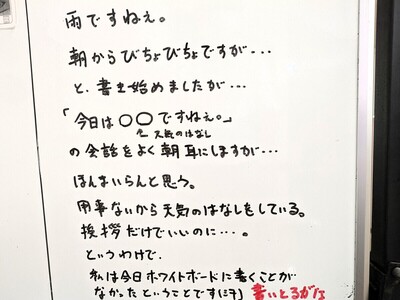 雨ですねぇ。
朝からびちょびちょですが・・・
と、書き始めましたが・・・
「今日は〇〇ですねぇ。」
天気のはなし
の会話をよく朝耳にしますが・・・
ほんまいらんと思う。
用事ないから天気のはなしをしている。
挨拶だけでいいのに・・・。
というわけで、
私は今日ホワイトボードに書くことが
なかったということです(ﾆﾁｬ) 書いとるがな